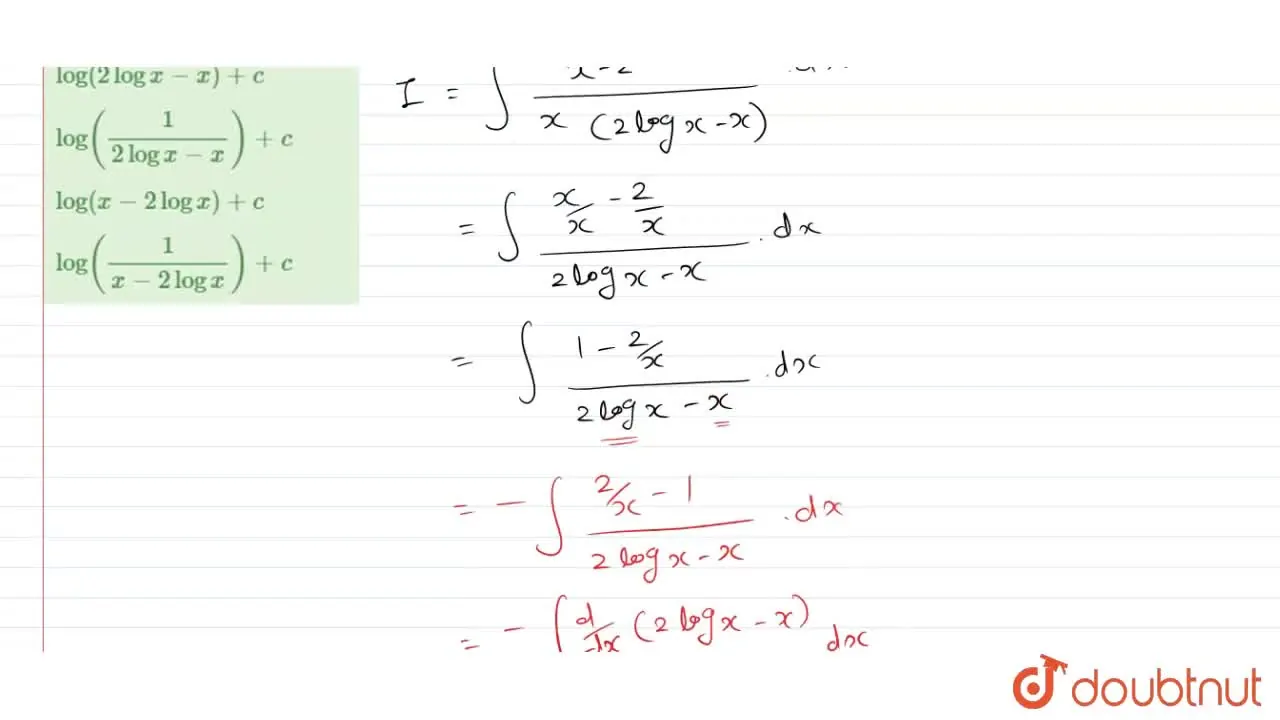 log(2 log x − x) + c
log(1/(2 log x − x)) + c
log(x − 2 log x) + c
log(1/(x − 2 log x)) + c
I = ∫ (x-2)/(x (2 log x - x)) .dx
= ∫ (x/x - 2/x)/(2 log x - x) .dx
= ∫ (1 - 2/x)/(2 log x - x) .dx
= - ∫ (2/x - 1)/(2 log x - x) .dx
= - ∫ d/dx (2 log x - x) dx
doubtnut